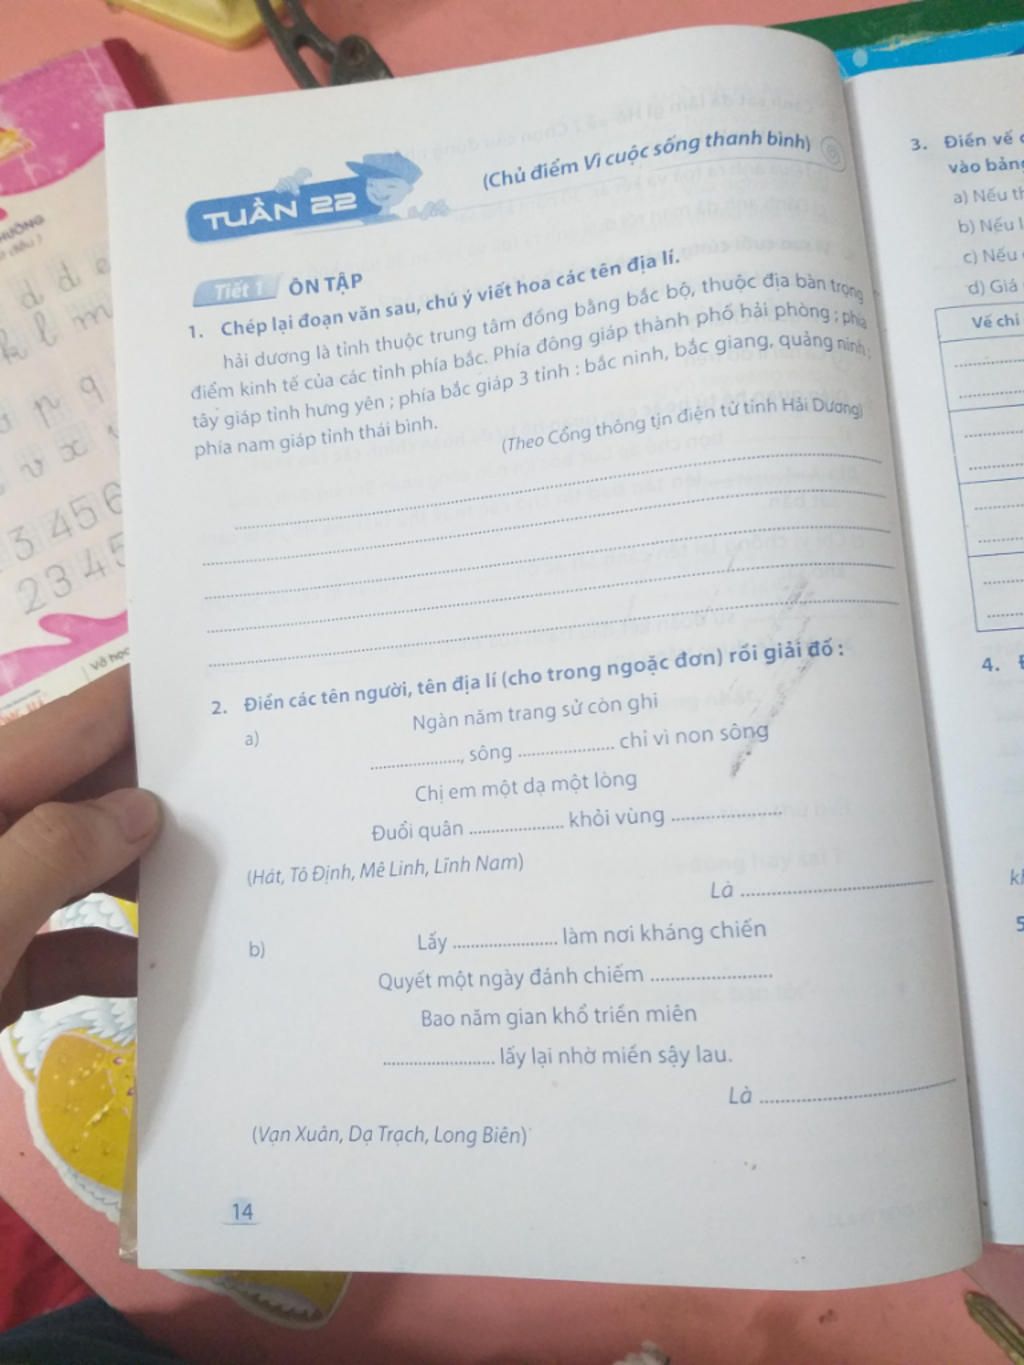 (Chủ điểm Vì cuộc sống thanh bình)
TUẦN 22
Tiết 1 ÔN TẬP
1. Chép lại đoạn văn sau, chú ý viết hoa các tên địa lí.
hải dương là tỉnh thuộc trung tâm đồng bằng bắc bộ, thuộc địa bàn trọng
điểm kinh tế của các tỉnh phía bắc. Phía đông giáp thành phố hải phòng ; phía
tây giáp tỉnh hưng yên ; phía bắc giáp 3 tỉnh : bắc ninh, bắc giang, quảng ninh ;
phía nam giáp tỉnh thái bình.
(Theo Cổng thông tin điện tử tỉnh Hải Dương)
2. Điền các tên người, tên địa lí (cho trong ngoặc đơn) rồi giải đố :
a) Ngàn năm trang sử còn ghi
...................., sông .................... chỉ vì non sông
Chị em một dạ một lòng
Đuổi quân .................... khỏi vùng ....................
(Hát, Tô Định, Mê Linh, Lĩnh Nam)
Là ....................
b) Lấy .................... làm nơi kháng chiến
Quyết một ngày đánh chiếm ....................
Bao năm gian khổ triền miên
.................... lấy lại nhờ miền sậy lau.
Là ....................
(Vạn Xuân, Dạ Trạch, Long Biên)
14
3. Điền vế
vào bảng
a) Nếu
b) Nếu
c) Nếu
d) Giá
Vế chỉ
4.
5
d d
k l m
p q
v x
3 4 5 6
2 3 4 5
Vở học